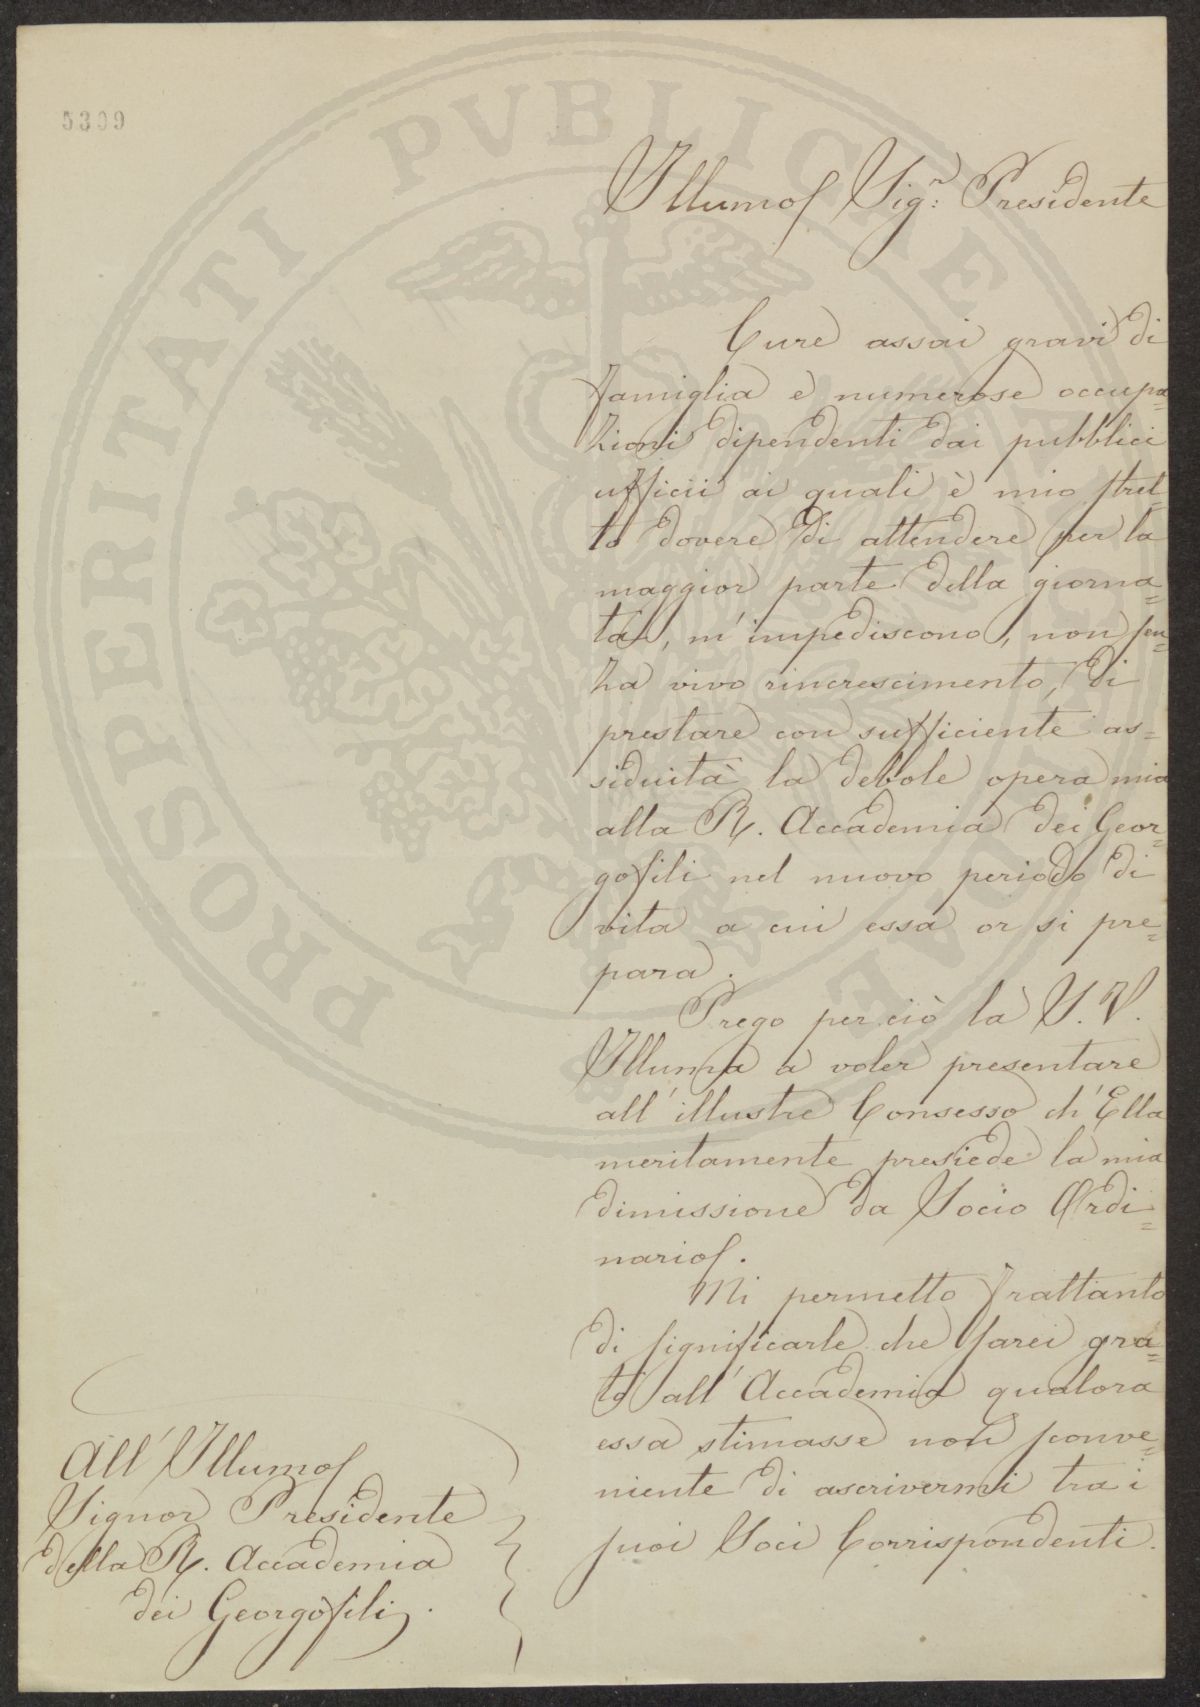 5309
Illumo Sigr: Presidente
Cure assai gravi di
famiglia e numerose occupa=
zioni dipendenti dai pubblici
ufficii ai quali è mio stret=
to dovere di attendere per la
maggior parte della giorna=
ta, m'impediscono, non sen=
za vivo rincrescimento, di
prestare con sufficiente as=
siduità la debole opera mia
alla R. Accademia dei Geor=
gofili nel nuovo periodo di
vita a cui essa or si pre=
para.
Prego per ciò la S. V.
Illuma a voler presentare
all'illustre Consesso ch'Ella
meritamente presiede la mia
dimissione da Socio Ordi=
nario.
Mi permetto frattanto
di significarle che sarei gra=
to all'Accademia qualora
essa stimasse non sconve=
niente di ascrivermi tra i
suoi Soci Corrispondenti.
All'Illumo
Signor Presidente
della R. Accademia
dei Georgofili.
PROSPERITATI PVBLICAE